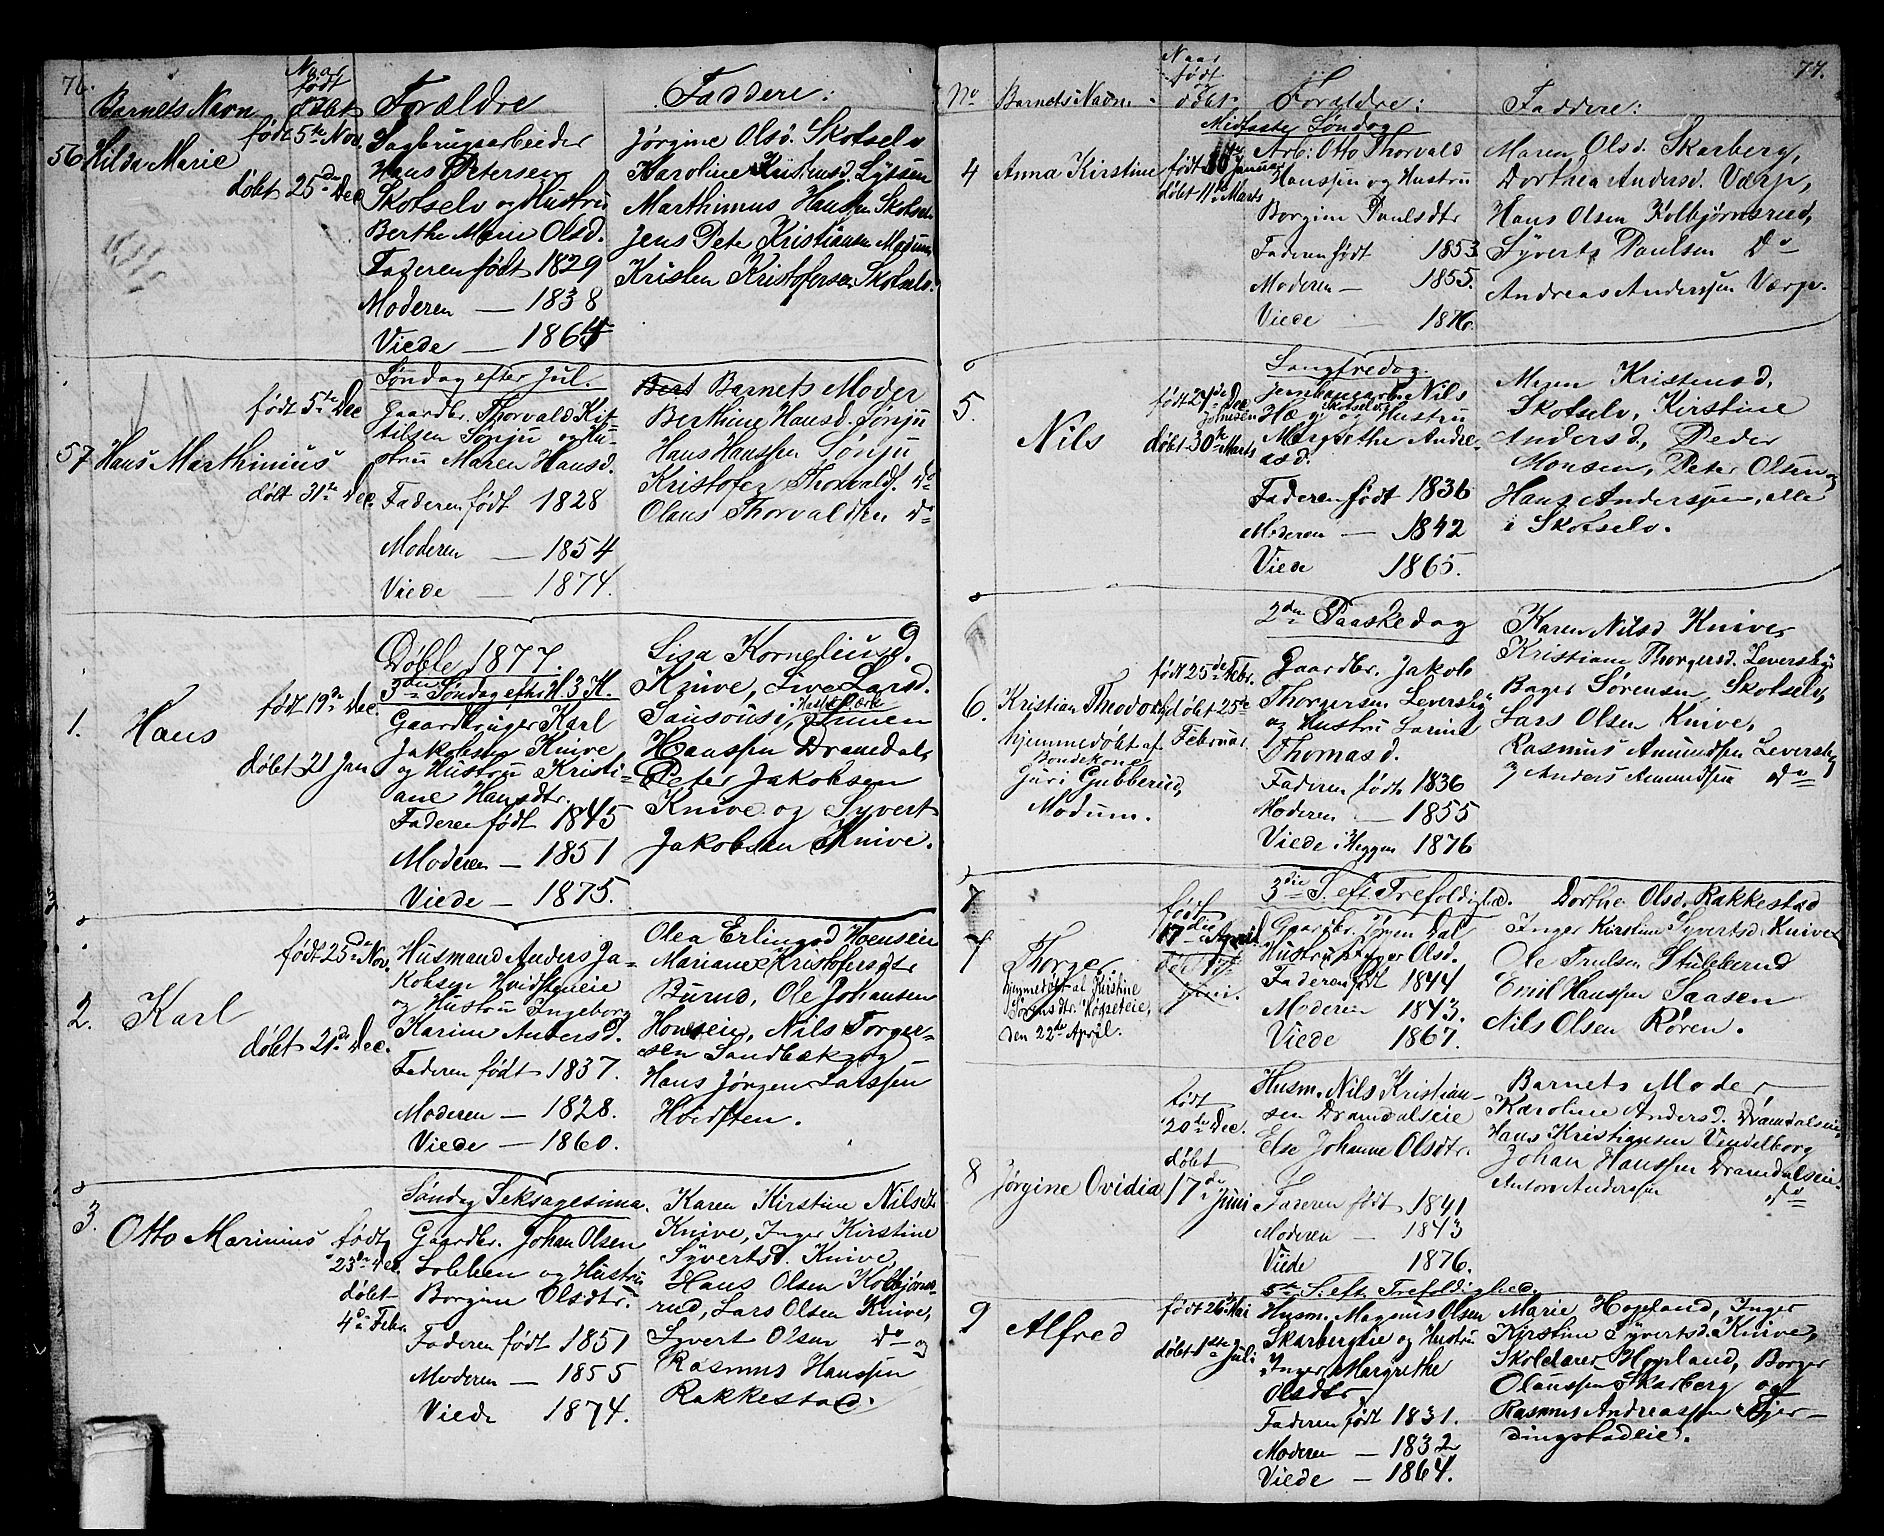 76.
Barnets Navn
Naar født døbt
Forældre
Faddere:
56 Hilda Marie
født 5te Nov.
døbt 25de Dec.
Sagbrugsarbeider
Hans Petersen
Skotselv og Hustru
Berthe Marie Olsd.
Faderen født 1829
Moderen — 1838
Viede —
Jørgine Olsd. Skotselv
Karoline Kristensd.
Marthinius Hansen Skotselv
Jens Peter Kristiansen Modum
Kristen Kristofersen Skotselv.
57 Hans Marthinius
født 5te Dec
døbt 31te Dec.
Søndag efter Jul.
Gaardbr. Thorvald Kit-
tilsen Sønju og Hu-
stru Maren Hansd.
Faderen født 1828
Moderen — 1854
Viede — 1874.
Barnets Moder
Berthine Hansd. Sønju
Hans Hanssen Sønju
Kristofer Thorvalds. Do
Olaus Thorvaldsen Do
Døbte 1877.
3die Søndag efter H. 3 K.
1. Hans
født 19de Dec.
døbt 21 Jan
Gaardbruger Karl
Jakobsen Knive
og Hustru Kristi-
ane Hansdtr.
Faderen født 1845
Moderen — 1851
Viede — 1875.
Lisa Korneliusd.
Knive, Live Larsd.
Sansousi,
Hanssen Dramdal,
Peter Jakobsen
Knive og Syvert
Jakobsen Knive.
2. Karl
født 25de Nov.
døbt 21de Dec.
Husmand Anders Ja-
kobsen Hvidsteneie
og Hustru Ingeborg
Karine Andersd.
Faderen født 1837.
Moderen — 1828.
Viede — 1860.
Olea Erlingsd Hoenseie
Mariane Kristofersdtr
Burud, Ole Johansen
Honseie, Nils Torger-
sen Sandbæk og
Hans Jørgen Larssen
Hvidsten.
3. Otto Marinius
født
23de Dec.
døbt
4de Febr.
Søndag Seksagesima.
Gaardbr. Johan Olsen
Lobben og Hustru
Borgine Olsdtr.
Faderen født 1851
Moderen — 1855
Viede 1874.
Karen Kirstine Nilsdt
Knive, Inger Kirstine
Syvertsd. Knive,
Hans Olsen Kolbjørns-
rud, Lars Olsen Knive,
Syvert Olsen Do og
Rasmus Hanssen
Rakkestad.
77.
No
Barnets Navn
Naar født døbt
Forældre:
Faddere:
Midfaste Søndag
4 Anna Kirstine
født Januar
døbt 11te Marts
Arb: Otto Thorvald
Hanssen og Hustru
Borgine Paulsdtr
Faderen født 1853
Moderen — 1855.
Viede — 1876.
Maren Olsd. Skarberg,
Dorthea Andersd. Værp,
Hans Olsen Kolbjørnsrud,
Syvert Paulsen Do
Andreas Anderssen Værp.
Langfredag.
5. Nils
døbt 30te Marts
Jernbanearb. Nils
Skotselv
Hustru
Margrethe Andre-
asd.
Faderen født 1836
Moderen — 1842
Viede 1865.
Maren Kristensd.
Skotselv, Kirstine
Andersd, Peder
Monsen, Peter Olsen og
Hans Anderssen, alle
i Skotselv.
2den Paaskedag
6. Kristian Theodor
hjemmedøbt af
Bondekone
Guri Gubberud,
Modum.
født 25de Febr.
døbt 25de
Februar
Gaardbr. Jakob
Thorgersen Leversby
og Hustru Larine
Thomasd.
Faderen født 1836
Moderen — 1855
Viede i Heggen 1876
Karen Nilsd Knive
Kristiane Thorgersd. Leversby
Bager Sørensen, Skotselv,
Lars Olsen Knive,
Rasmus Amundsen Leversby
Anders Amundssen Do
3die S. eft. Trefoldighed.
7 Thorger
hjemmedøbt af Kirstine
Sørensdtr. Høgseteie,
den 22de April.
født
17de April
Juni.
Gaardbr. Jørgen
Hustru Inger Olsd.
Faderen født 1844
Moderen 1843.
Viede 1867.
Dorthe Olsd. Rakkestad
Inger Kirstine Syvertsd. Knive
Ole Trulsen Stubberud
Emil Hanssen Saasen
Nils Olsen Røren.
8 Jørgine Ovidia
født
20de Dec.
døbt
17de Juni
Husm. Nils Kristian-
sen Dramdalseie
Else Johanne Olsdtr.
Faderen født 1841
Moderen — 1843
Viede 1876.
Barnets Moder
Karoline Andersd. Dramdalseie
Hans Kristiansen Vendelborg
Johan Hanssen Dramdalseie.
Anton Anderssen Do
5te S. eft. Trefoldighed.
9 Alfred
født 26 Mai
døbt 1ste Juli
Husm. Magnus Olsen
Skarbergeie og Hustru
Inger Margrethe
Olsdtr.
Faderen født 1831.
Moderen — 1832
Viede — 1864.
Marie Hopland, Inger
Kirstine Syvertsd. Knive,
Skolelærer Hopland, Borger
Olaussen Skarberg og
Rasmus Andreassen Fjer-
dingstadeie.